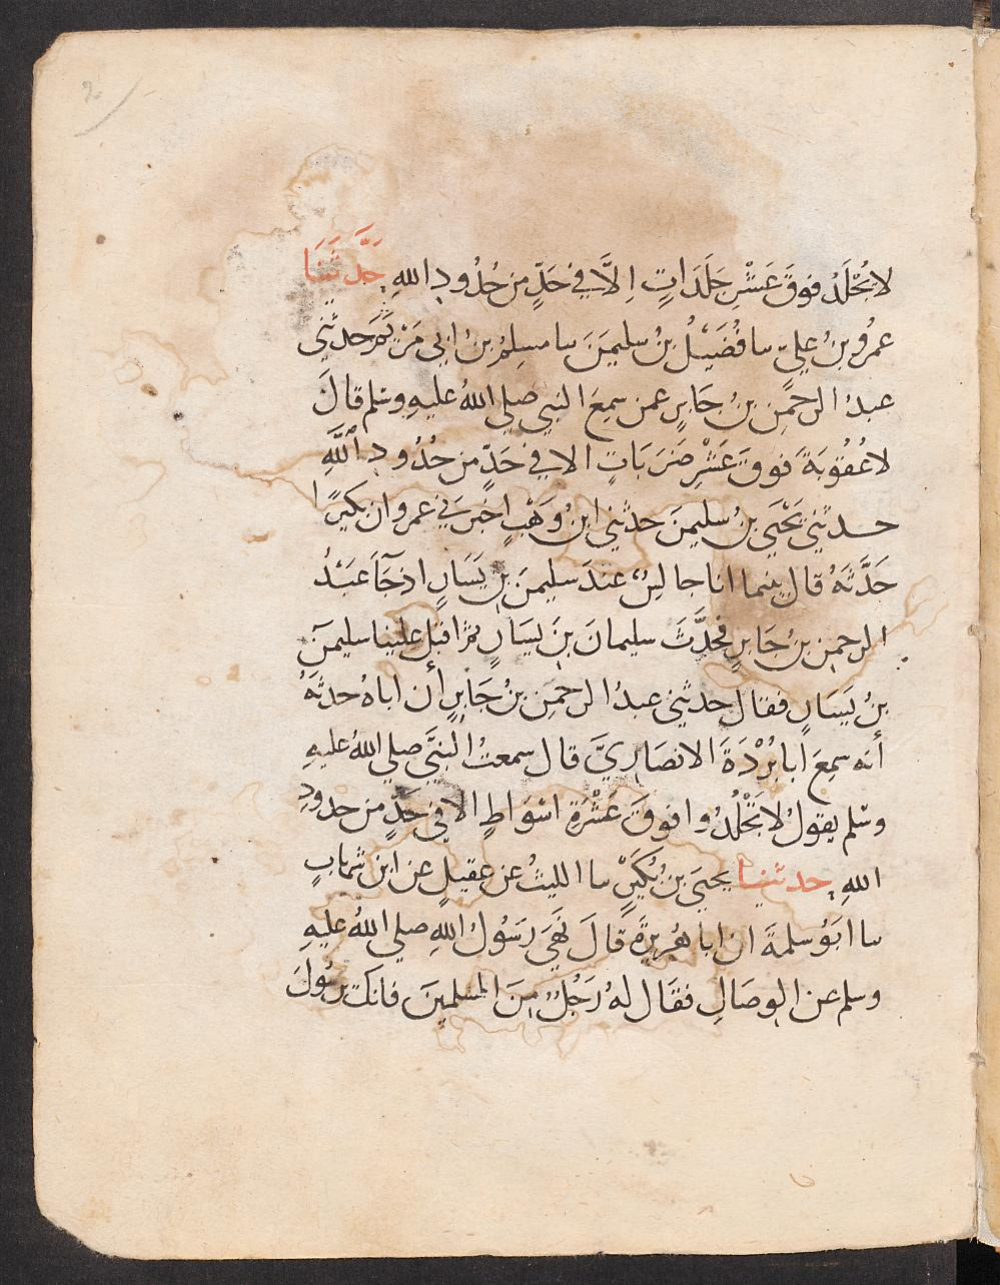 2
لا يُجْلَدُ فوقَ عَشْرِ جَلَدَاتٍ اِلَّا في حَدٍّ من حُدُودِ اللهِ حَدَّثَنَا
عمرُو بنُ عليٍّ سا فُضَيْلُ بنُ سليمنَ سا مسلمُ بنُ ابي مَرْيَمَ حدثني
عبدُ الرحمنِ بنُ جَابِرٍ عمن سمعَ النبي صلى اللهُ عليهِ وسلم قالَ
لا عُقُوبَةَ فوقَ عَشْرِ ضَرَبَاتٍ الا في حَدٍّ من حُدُودِ اللَّهِ
حدثني يَحْيَى بنُ سليمنَ حدثني ابنُ وَهْبٍ اخبرَني عمرو ان بكيرًا
حَدَّثَهُ قال بينما انا جالسٌ عندَ سليمنَ بنِ يَسَارٍ اذ جَآءَ عَبْدُ
الرحمنِ بنُ جَابِرٍ فحدَّثَ سليمانَ بنَ يَسَارٍ ثم اقبلَ علينا سليمنُ
بنُ يَسَارٍ فقال حدثني عبدُ الرحمنِ بنُ جَابِرٍ أن اباهُ حدثهُ
أنه سمِعَ ابا بُرْدَةَ الانصَارِيَّ قال سمعتُ النبيَّ صلى اللهُ عليهِ
وسلم يقولُ لا تَجْلُدُوا فوقَ عَشْرَةِ اسْوَاطٍ الا في حَدٍّ من حدودِ
اللهِ حدثنا يحيَى بنُ بُكَيْرٍ سا الليثُ عن عقيلٍ عن ابن شهابٍ
سا ابَوُ سلمةَ ان ابا هُريرةَ قالَ نَهَى رَسُولُ اللهِ صلى اللهُ عليهِ
وسلم عن الوِصَالِ فقَال لهُ رَجُلٌ مِنَ المسلمينَ فانكَ يرسُولَ